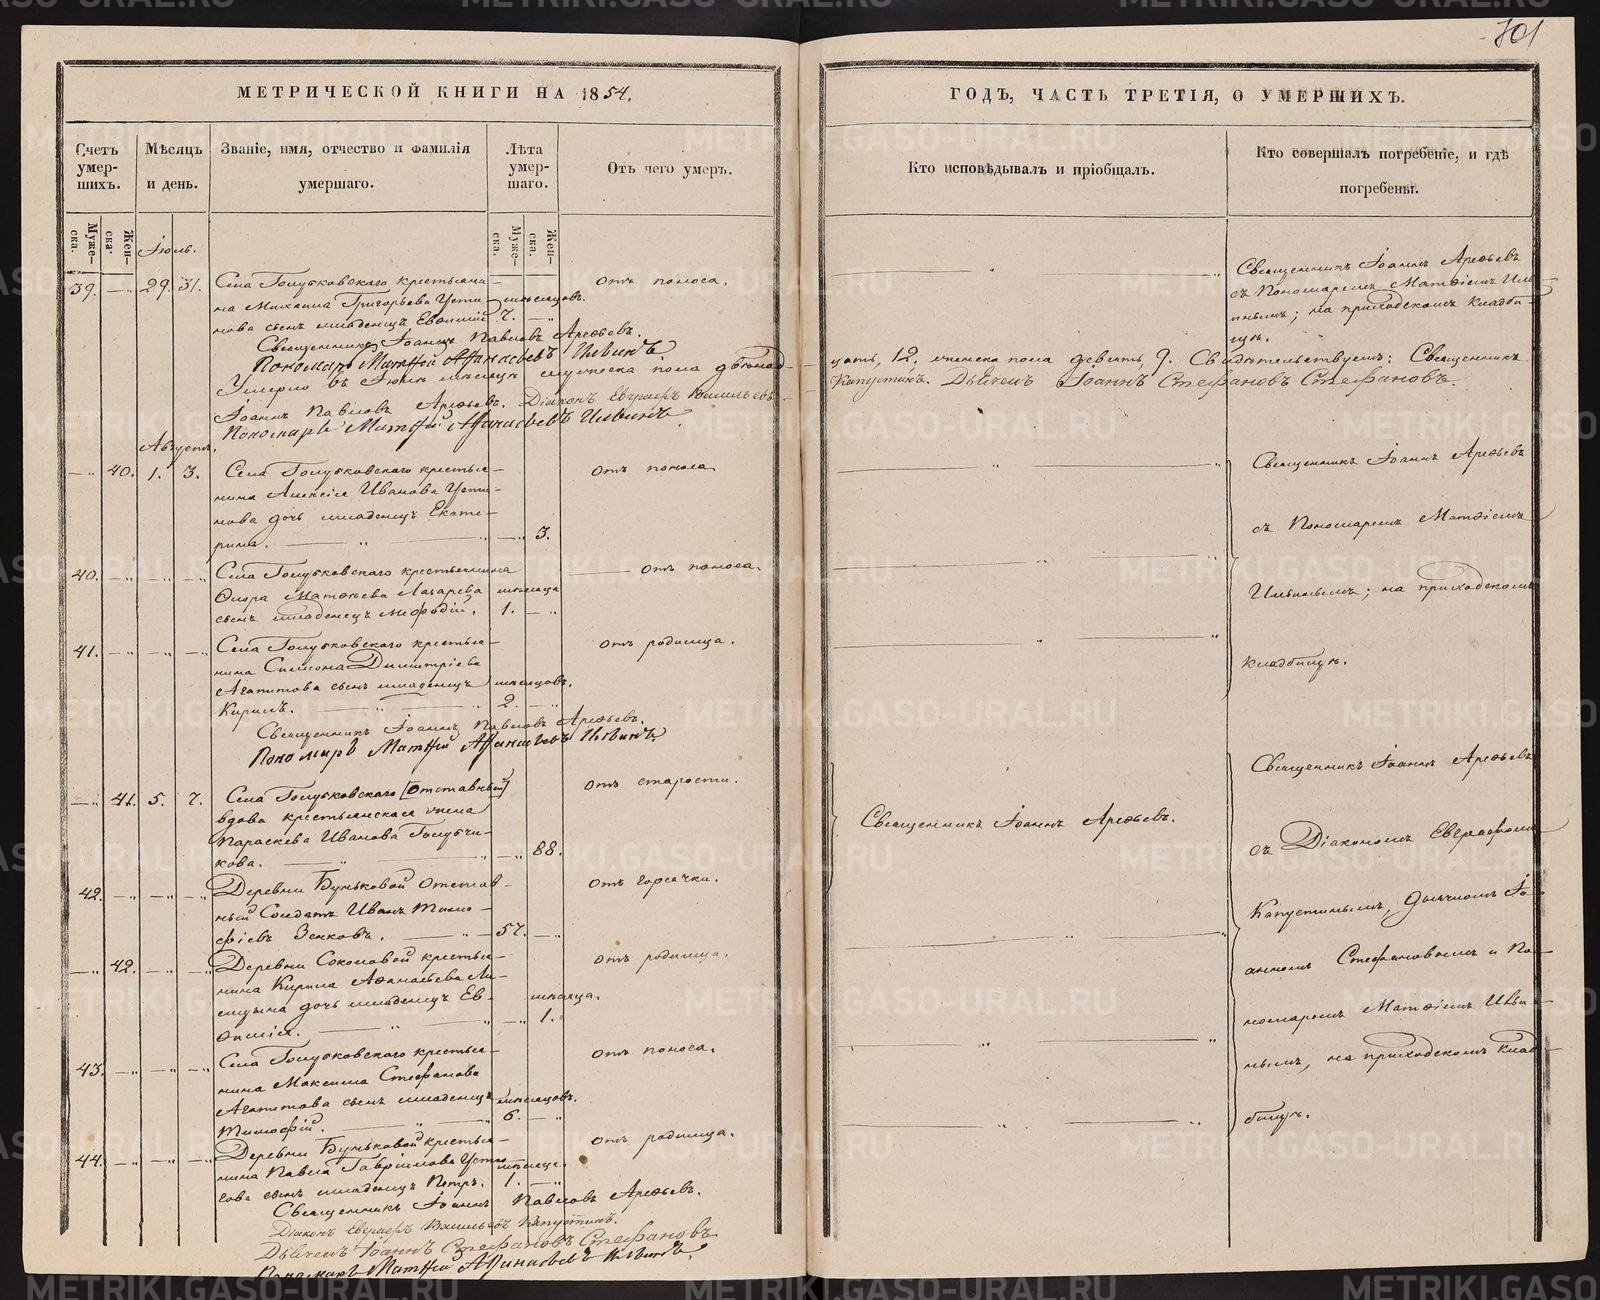 701
МЕТРИЧЕСКОЙ КНИГИ НА 1854.
ГОДЪ, ЧАСТЬ ТРЕТІЯ, О УМЕРШИХЪ.
Счетъ умер-шихъ.
Мѣсяцъ и день.
Званіе, имя, отчество и фамилія умершаго.
Лѣта умер-шаго.
Отъ чего умеръ.
Кто исповѣдывалъ и пріобщалъ.
Кто совершалъ погребеніе, и гдѣ погребены.
Муже-ска.
Жен-ска.
Муже-ска.
Жен-ска.
Іюль.
39. 29. 31.
Села Голубковскаго крестьяни-
на Михаила Григорьева Усти-
нова сынъ младенецъ Евѳимій
мѣсяцовъ.
7.
отъ поноса.
Священникъ Іоаннъ Арефьевъ
съ Пономаремъ Матѳіемъ Иль-
инымъ; на приходскомъ кладби-
щѣ.
Священникъ Іоаннъ Павловъ Арефьевъ.
Пономарь Матѳій Аѳанасьевъ Ильинъ.
Умерло въ Іюлѣ мѣсяцѣ мужеска пола двѣнад-
цать, 12. женска пола девять, 9. Свидѣтельствуемъ: Священникъ
Іоаннъ Павловъ Арефьевъ. Діаконъ Евграфъ Васильевъ
Капустинъ. Дьячекъ Іоаннъ Стефановъ Стефановъ.
Пономарь Матѳій Аѳанасьевъ Ильинъ
Августъ.
40. 1. 3.
Села Голубковскаго крестья-
нина Алексія Иванова Усти-
нова дочь младенецъ Екате-
рина.
3.
отъ поноса
Священникъ Іоаннъ Арефьевъ
съ Пономаремъ Матѳіемъ
Ильинымъ; на приходскомъ
кладбищѣ.
40.
Села Голубковскаго крестьянина
Матѳѣева Лазарева
сынъ младенецъ Меѳодій.
мѣсяца
1.
отъ поноса.
41.
Села Голубковскаго крестья-
нина Симеона Димитріева
Агапитова сынъ младенецъ
Кирилъ.
мѣсяцовъ.
2.
отъ родимца.
Священникъ Іоаннъ Павловъ Арефьевъ.
Пономарь Матѳій Аѳанасьевъ Ильинъ.
41. 5. 7.
Села Голубковскаго [отставный]
вдова крестьянская жена
Параскева Иванова Голубчи-
кова.
88.
отъ старости.
Священникъ Іоаннъ Арефьевъ.
Священникъ Іоаннъ Арефьевъ
съ Діакономъ Евграфомъ
Капустинымъ, дьячкомъ Іо-
анномъ Стефановымъ и По-
номаремъ Матѳіемъ Ильи-
нымъ, на приходскомъ клад-
бищѣ.
42.
Деревни Буньковой отстав-
ный Солдатъ Иванъ Тимо-
фіевъ Зенковъ.
57.
отъ горячки.
42.
Деревни Соколовой крестья-
нина Кирила Аѳанасьева
дочь младенецъ Ев-
ѳимія.
мѣсяца.
1.
отъ родимца.
43.
Села Голубковскаго крестья-
нина Максима Стефанова
Агапитова сынъ младенецъ
Тимофій.
мѣсяцовъ.
6.
отъ поноса.
44.
Деревни Буньковой крестья-
нина Павла Гавріилова
сынъ младенецъ Петръ.
мѣсяца.
1.
отъ родимца.
Священникъ Іоаннъ Павловъ Арефьевъ.
Діаконъ Евграфъ Васильевъ Капустинъ.
Дьячекъ Іоаннъ Стефановъ Стефановъ
Пономарь Матѳій Аѳанасьевъ Ильинъ.
METRIKI.GASO-URAL.RU